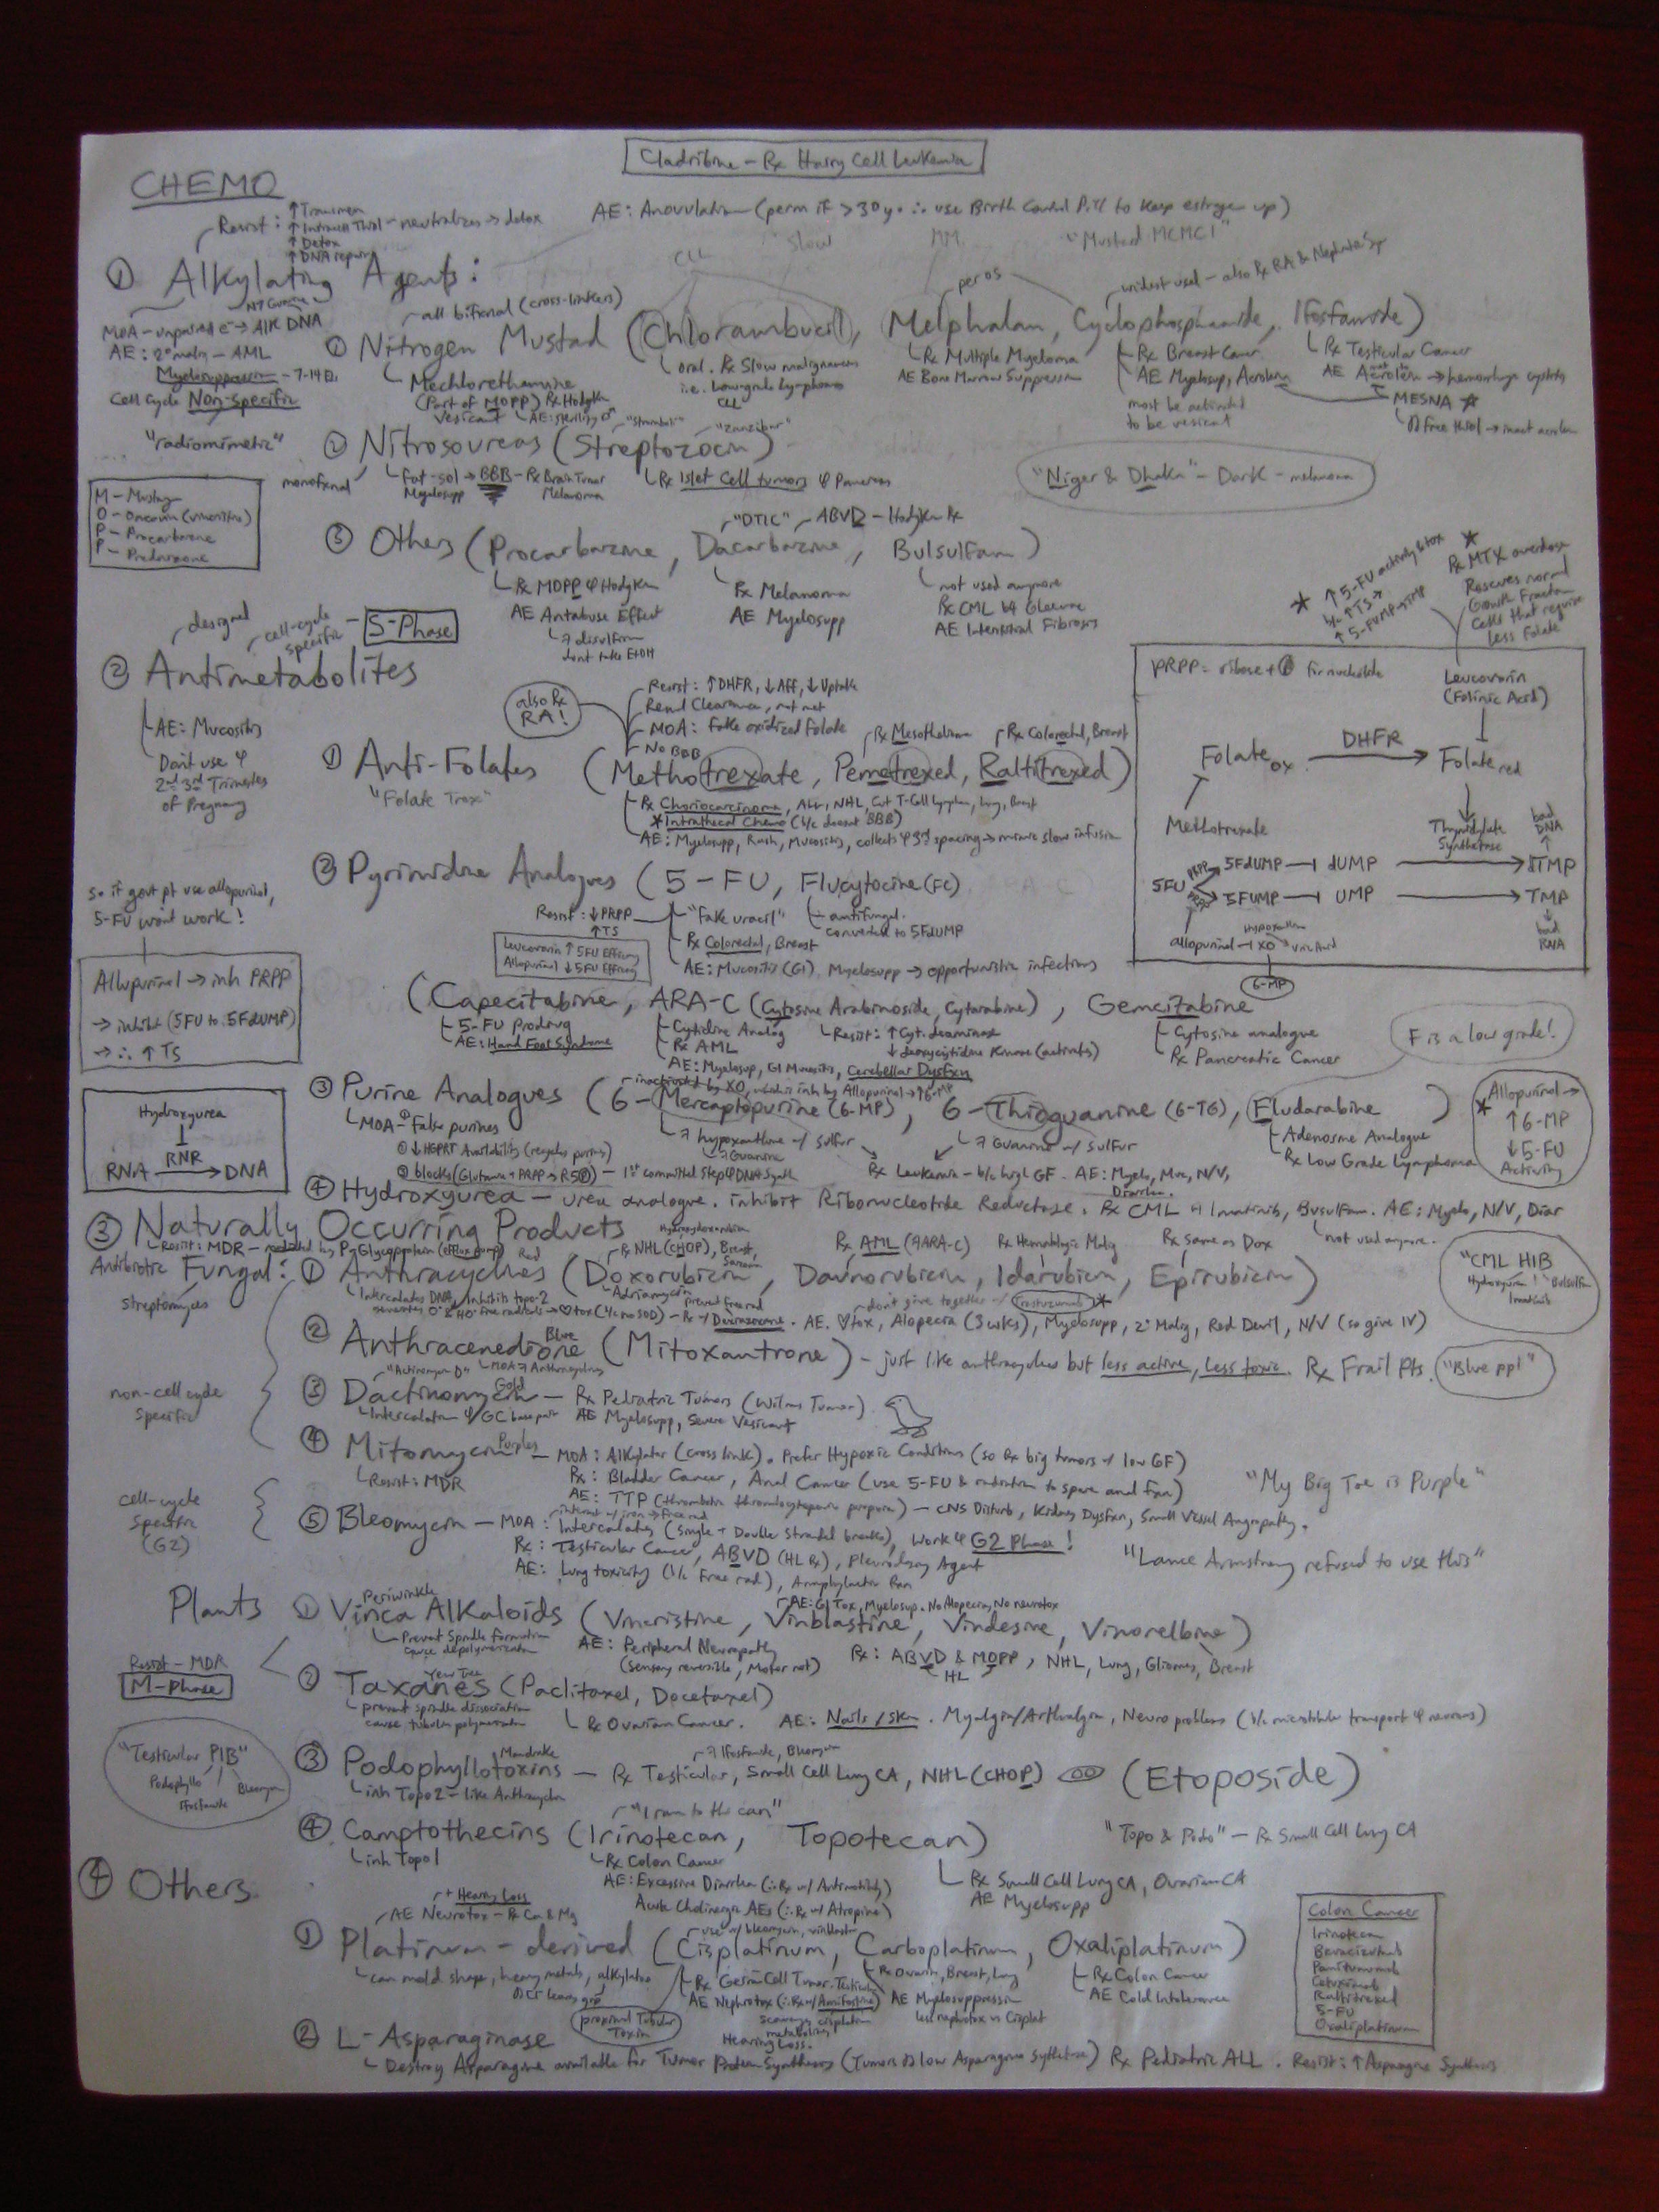 Cladribine - Rx Hairy Cell Leukemia
CHEMO
Resist: ↑Transmem
↑ Intracell Thiol - neutralizes → detox
↑ Detox
↑ DNA repair
AE: Anovulation (perm if >30yo ∴ use Birth Control Pill to keep estrogen up)
CLL
Slow
MM
"Mustad MCMCI"
① Alkylating Agents:
per os
widest used - also Rx RA & Nephrotic Sy
MOA - unpaired e- → Alk DNA
N7 Guanine
AE: 2° malig - AML
Myelosuppression - 7-14 D.
Cell Cycle Non-specific
"radiomimetic"
all bifxnal (cross-linkers)
① Nitrogen Mustad (Chlorambucil, Melphalan, Cyclophosphamide, Ifosfamide)
Mechlorethamine
(Part of MOPP) Rx Hodgkin
Vesicant
AE: sterility ♂
oral. Rx Slow malignancies
i.e. Low grade Lymphoma
CLL
Rx Multiple Myeloma
AE Bone Marrow Suppression
Rx Breast Cancer
AE Myelosup, Acrolein
must be activated
to be vesicant
Rx Testicular Cancer
AE Acrolein → hemorrhagic cystitis
MESNA ☆
free thiol → inact acrolein
"Stromboli" "Zanzibar"
② Nitrosoureas (Streptozocin)
monofxnal
fat-sol → BBB - Rx Brain Tumor
Myelosupp Melanoma
Rx Islet Cell tumors φ Pancreas
"Niger & Dhaka" - Dark - melanoma
M - Mustargen
O - Oncovin (vincristine)
P - Procarbazine
P - Prednisone
"DTIC" ABVD - Hodgkin Rx
③ Others (Procarbazine, Dacarbazine, Bulsulfam)
Rx MOPP φ Hodgkin
AE Antabuse Effect
disulfiram
dont take EtOH
Rx Melanoma
AE Myelosupp
not used anymore
Rx CML b4 Gleevec
AE Interstitial Fibrosis
designed
cell-cycle
specific - S-Phase
② Antimetabolites
AE: Mucositis
Don't use φ
2nd 3rd Trimesters
of Pregnancy
also Rx
RA!
Resist: ↑DHFR, ↓Aff, ↓Uptake
Renal Clearance, not met
MOA: Fake oxidized folate
No BBB
Rx Mesothelioma
Rx Colorectal, Breast
① Anti-Folates (Methotrexate, Pemetrexed, Raltitrexed)
"Folate Trex"
Rx Choriocarcinoma, ALL, NHL, Cut T-Cell Lymphom, Lung, Breast
* Intrathecal Chemo (b/c doesnt BBB)
AE: Myelosupp, Rash, Mucositis, collects φ 3rd spacing → mimic slow infusion
* ↑ 5-FU activity & tox
b/c ↑TS →
↑ 5-FUMP → TMP
* Rx MTX overdose
Rescues normal
Growth Fraction
Cells that require
less Folate
PRPP: ribose + P for nucleotide
Leucovorin
(Folinic Acid)
Folate ox DHFR → Folate red
Methotrexate
Thymidylate
Synthetase
bad
DNA
5FU PRPP 5FdUMP ⊣ dUMP → dTMP
PRPP 5FUMP ⊣ UMP → TMP
Hypoxanthine
allopurinol ⊣ XO Uric Acid
bad
RNA
6-MP
② Pyrimidine Analogues (5-FU, Flucytocine (FC)
so if gout pt use allopurinol,
5-FU wont work!
Allopurinol → inh PRPP
→ inhibit (5FU to 5FdUMP)
→ ∴ ↑ TS
Resist: ↓PRPP
↑TS
Leucovorin ↑ 5FU Efficacy
Allopurinol ↓ 5FU Efficacy
"Fake uracil"
Rx Colorectal, Breast
AE: Mucositis (GI) Myelosupp → opportunistic infections
antifungal.
converted to 5FdUMP
(Capecitabine, ARA-C (Cytosine Arabinoside, Cytarabine), Gemcitabine
5-FU Prodrug
AE: Hand Foot Syndrome
Cytidine Analog
Rx AML
AE: Myelosup, GI Mucositis, Cerebellar Dysfxn
Resist: ↑ Cyt. deaminase
↓ deoxycitidine kinase (activates)
Cytosine analogue
Rx Pancreatic Cancer
F is a low grade!
Hydroxyurea
RNR
RNA → DNA
inactivated by XO, which is inh by Allopurinol → ↑6-MP
③ Purine Analogues (6-Mercaptopurine (6-MP), 6-Thioguanine (6-TG), Fludarabine)
MOA φ False purines
① ↓ HGPRT Availability (recycles purines)
② blocks (Glutamine + PRPP → R5P) - 1st committed Step φ DNA Synth
hypoxanthine w/ sulfur
Guanine
Guanine w/ sulfur
Rx Leukemia - b/c high GF. AE: Myelo, Muc, N/V,
Diarrhea.
Adenosine Analogue
Rx Low Grade Lymphoma
* Allopurinol →
↑ 6-MP
↓ 5-FU
Activity
④ Hydroxyurea - urea analogue. inhibit Ribonucleotide Reductase. Rx CML w/ Imatinib, Busulfam. AE: Myelo, N/V, Diar
not used anymore.
③ Naturally Occurring Products
Resist: MDR - mediated by P-Glycoprotein (efflux pump)
"CML HIB"
Hydroxyurea Bulsulfam
Imatinib
Antibiotic
streptomyces
Red
Hydroxydoxorubicin
Rx NHL (CHOP), Breast,
Sarcoma
Rx AML (9ARA-C)
Rx Hematologic Malig
Rx Same as Dox
Fungal: ① Anthracyclines (Doxorubicin, Daunorubicin, Idarubicin, Epirubicin)
Adriamycin
Intercalates DNA, Inhibits topo-2
generates O· & HO· free radicals → ♡ tox (b/c no SOD) - Rx w/ Dexrazoxane. AE. ♡ tox, Alopecia (3 wks), Myelosupp, 2° Malig, Red Devil, N/V (so give IV)
prevent free rad
don't give together w/ Trastuzumab *
Blue
② Anthracenedione (Mitoxantrone) - just like anthracyclines but less active, less toxic. Rx Frail Pts. "Blue ppl"
"Actinomycin D" MOA Anthracyclines
non-cell cycle
specific
Gold
③ Dactinomycin - Rx Pediatric Tumors (Wilms Tumor)
Intercalation φ GC base pair
AE Myelosupp, Severe Vesicant
Purples
④ Mitomycin - MOA: Alkylator (cross link). Prefer Hypoxic Conditions (so Rx big tumors w/ low GF)
Resist: MDR
Rx: Bladder Cancer, Anal Cancer (use 5-FU & radiation to spare anal fxn)
AE: TTP (thrombotic thrombocytopenic purpura) - CNS Disturb, Kidney Dysfxn, Small Vessel Angiopathy.
"My Big Toe is Purple"
cell-cycle
specific
(G2)
interact w/ iron → free rad
⑤ Bleomycin - MOA: Intercalates (single + Double stranded breaks), Work φ G2 Phase!
Rx: Testicular Cancer, ABVD (HL Rx), Pleurodesing Agent
AE: Lung toxicity (b/c Free rad), Anaphylactic Rxn
"Lance Armstrong refused to use this"
Periwinkle
AE: GI Tox, Myelosup. No Alopecia, No neurotox
Plants ① Vinca Alkaloids (Vincristine, Vinblastine, Vindesine, Vinorelbine)
Prevent Spindle formation
cause depolymerization
AE: Peripheral Neuropathy
(sensory reversible, Motor not)
Rx: ABVD & MOPP, NHL, Lung, Gliomas, Breast
HL
Resist - MDR
M-Phase
Yew Tree
② Taxanes (Paclitaxel, Docetaxel)
prevent spindle dissociation
cause tubulin polymerization
Rx Ovarian Cancer. AE: Nails/skin. Myalgia/Arthralgia, Neuro problems (b/c microtubule transport φ neurons)
"Testicular PIB"
Podophyllo
Ifosfamide
Bleomycin
Mandrake
Ifosfamide, Bleomycin
③ Podophyllotoxins - Rx Testicular, Small Cell Lung CA, NHL (CHOP) (Etoposide)
inh Topo2 - like Anthracyclin
"I ran to the can"
④ Camptothecins (Irinotecan, Topotecan)
"Topo & Podo" - Rx Small Cell Lung CA
inh Topo1
Rx Colon Cancer
AE: Excessive Diarrhea (∴ Rx w/ Antimotility)
Acute Cholinergic AEs (∴ Rx w/ Atropine)
Rx Small Cell Lung CA, Ovarian CA
AE Myelosupp
④ Others
+ Hearing Loss
AE Neurotox - Rx Ca & Mg
use w/ bleomycin, vinblastin
① Platinum-derived (Cisplatinum, Carboplatinum, Oxaliplatinum)
can mold shape, heavy metals, alkylator
Cl leaving grp
proximal Tubular
Toxin
Rx Germ Cell Tumor. Testicular
AE Nephrotox (∴ Rx w/ Amifostine)
scavenges cisplatin
metabolites
Hearing Loss.
Rx Ovarian, Breast, Lung
AE Myelosuppression
less nephrotox vs Cisplat
Rx Colon Cancer
AE Cold Intolerance
Colon Cancer
Irinotecan
Bevacizumab
Panitumumab
Cetuximab
Raltitrexed
5-FU
Oxaliplatinum
② L-Asparaginase
Destroy Asparagine available for Tumor Protein Synthesis (Tumors low Asparagine Synthetase) Rx Pediatric ALL. Resist: ↑ Asparagine Synthesis